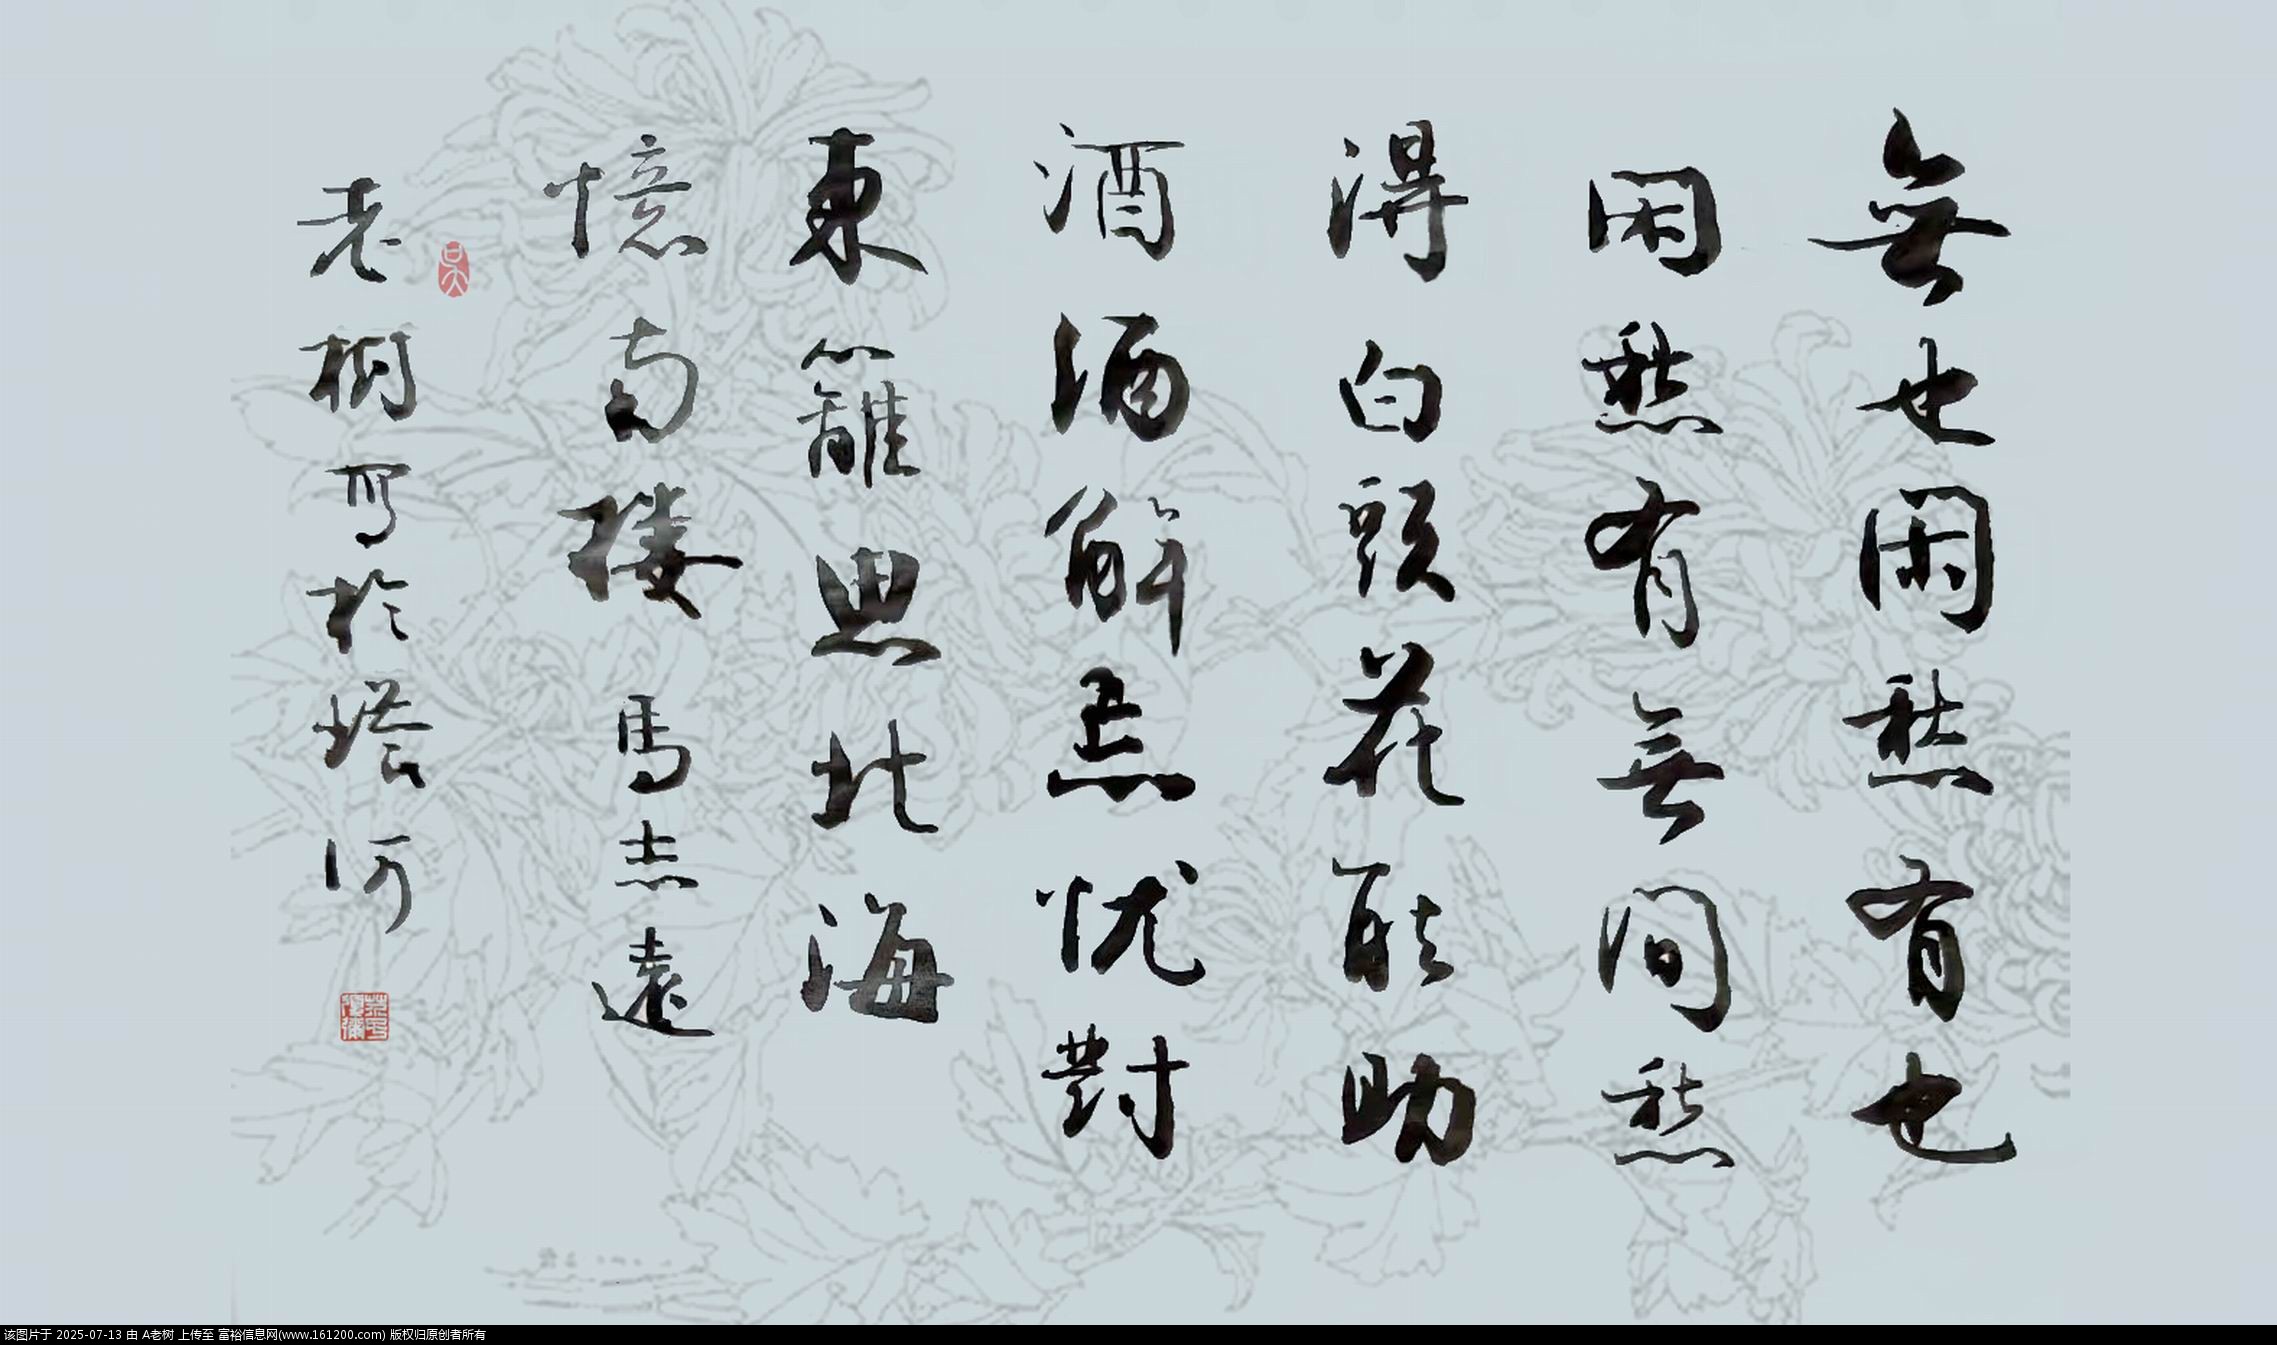 無也閑愁有也
閑愁有無間愁
得白頭花能助
酒酒解忘忧對
東籬思北海
憶南樓 馬志遠
老樹写於塔河
该图片于 2025-07-13 由 A老树 上传至 富裕信息网(www.161200.com) 版权归原创者所有